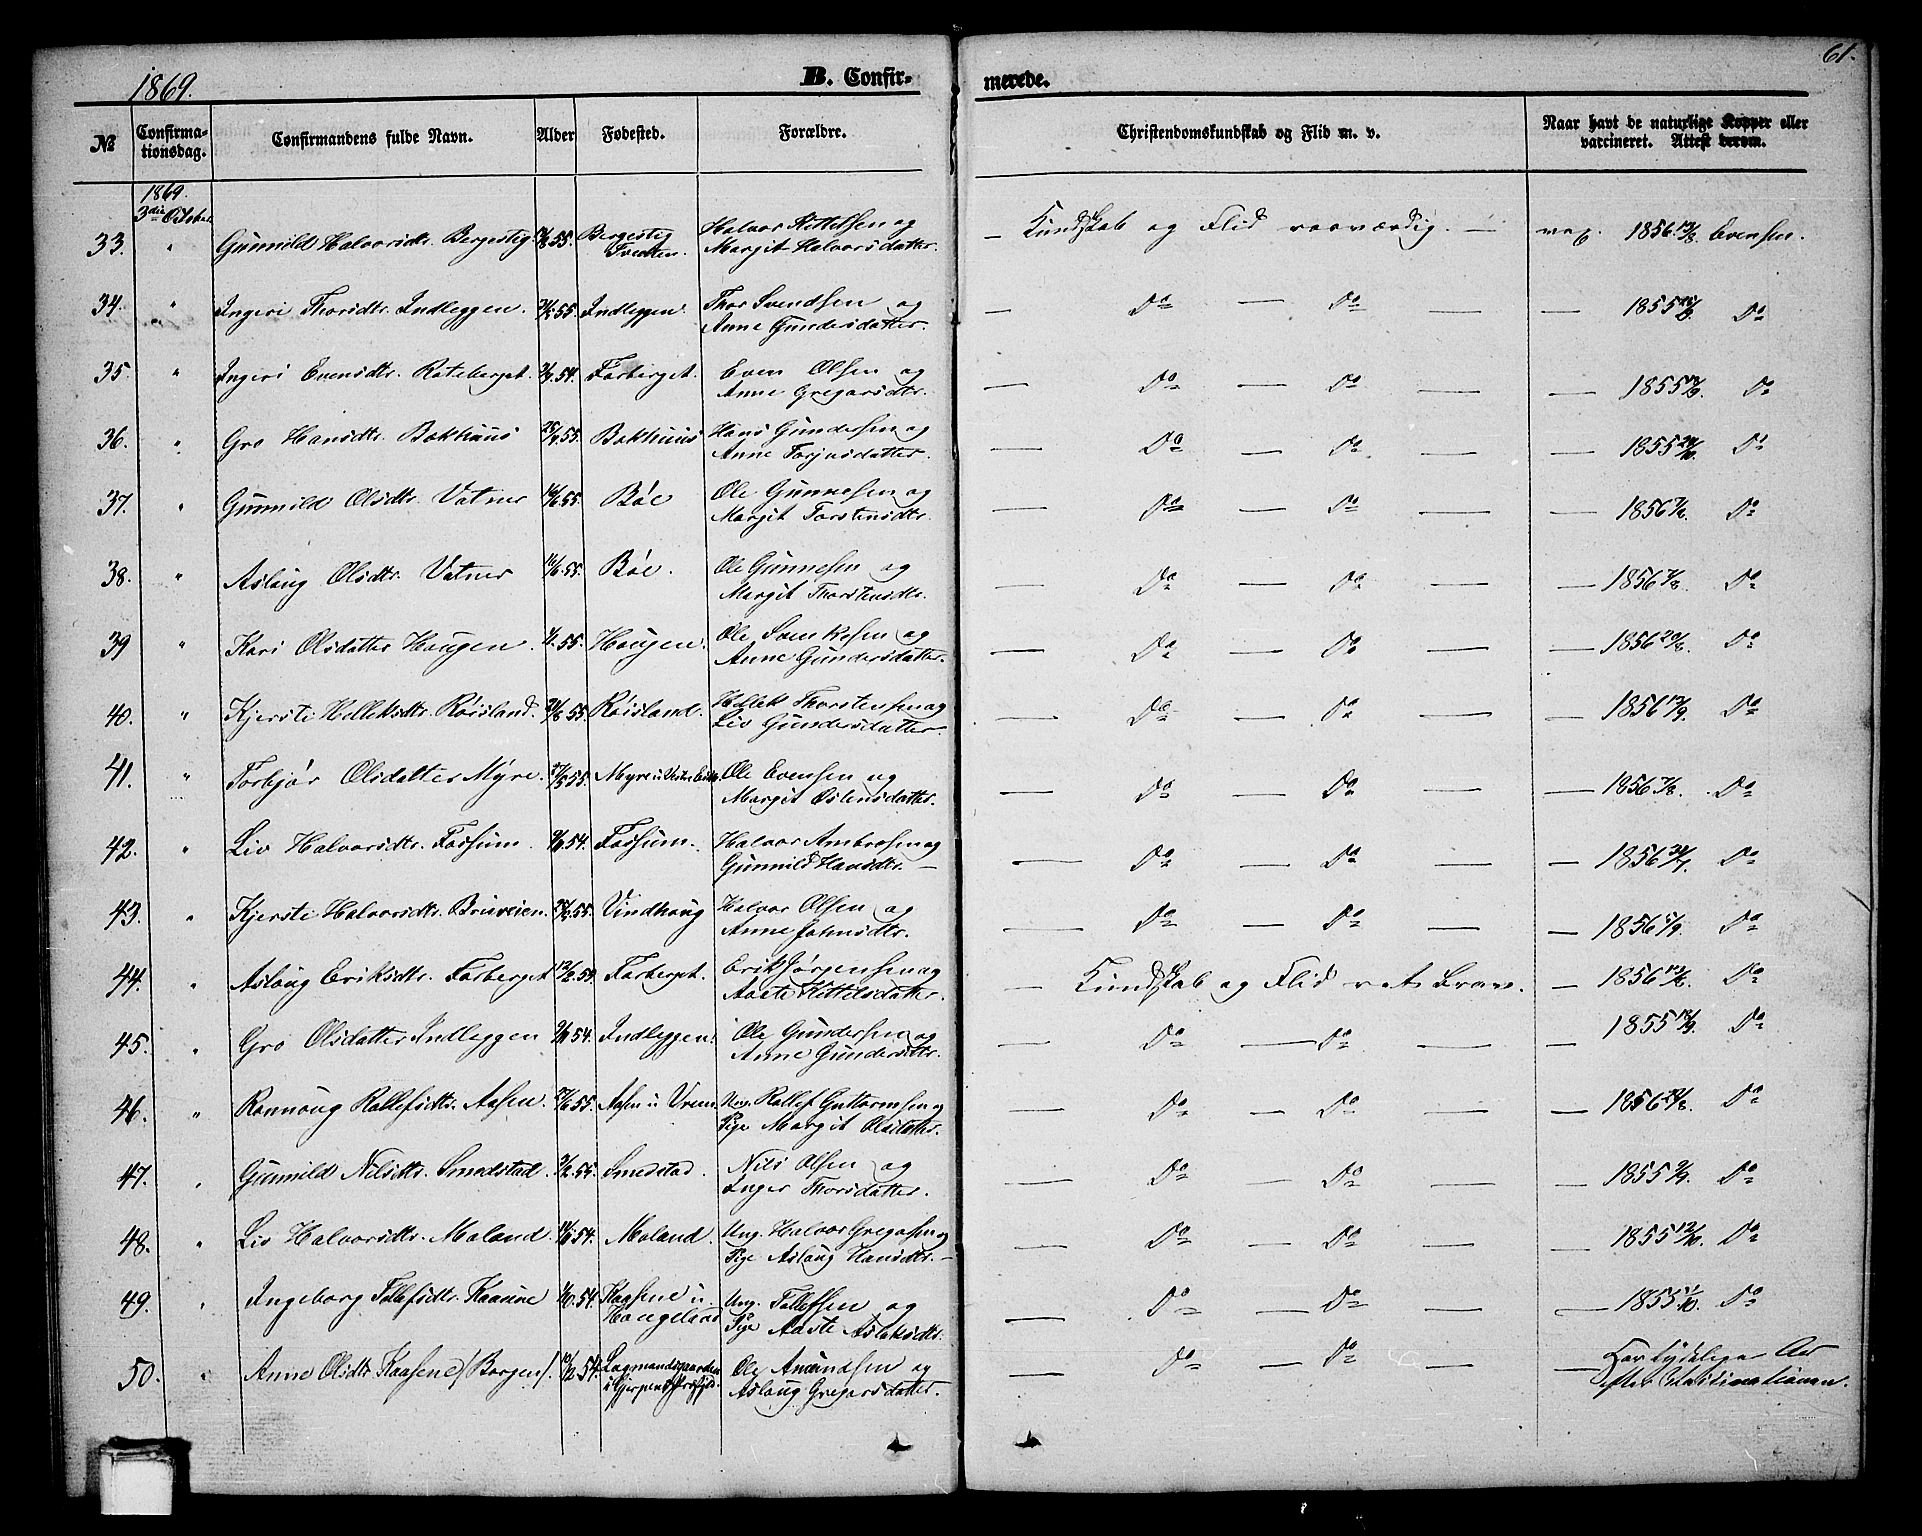 1869.
B. Confir-
merede.
61.
№ Confirma-tionsdag. Confirmandens fulde Navn. Alder Fødested. Forældre. Christendomskundskab og Flid m. v. Naar havt de naturlige Kopper eller vaccineret. Attest herom.
1869.
3die October
33. " Gunnild Halvorsdtr. Bergestig 55. Bergestig Tveten. Halvor Kittelsen og Margit Halvorsdatter. — Kundskab og Flid vac. 1856 Evensen.
34. " Ingeri Thorsdtr. Indleggen. 55. Indleggen. Thor Svendsen og Anne Gundersdatter. — Do — Do — — 1855 Do
35. " Ingeri Evensdtr. Roteberget. 54. Forberget. Even Olsen og Anne Gregarsdtr. — Do — Do — — 1855 Do
36. " Gro Hansdtr. Bokhuus 55. Bokhuus Hans Gundersen og Anne Torjusdatter. — Do — Do. — — 1855 Do
37. " Gunnild Olsdtr. Vatner 55. Böe Ole Gunnesen og Margit Torstensdtr. — Do — Do — — 1856 Do
38. " Aslaug Olsdtr. Vatner 55. Böe. Ole Gunnesen og Margit Thorstensdtr. — Do — Do — — 1856 7/8. Do
39 " Kari Olsdatter Haugen. 55. Haugen. Ole Svenkesen og Anne Gundersdatter. — Do — Do — — 1856 20/8. Do
40. " Kjersti Helleksdtr. Röisland. 55. Röisland. Hellek Thorstensen og Liv Gundersdatter — Do — Do — — 1856 Do
41. " Torbjör Olsdatter Myre. 55. Myre u. Ole Evensen og Margit Ostensdatter. — Do — Do — — 1856 7/8. Do
42. " Liv Halvorsdtr. Fossum. 54. Fossum. Halvor Ambrosen og Gunnild Hansdtr. — Do — Do — — 1856 30/7. Do
43. " Kjersti Halvorsdtr. Bruveien. 55. Vindhaug Halvor Olsen og Anne Johnsdtr. — Do — Do — — 1856 Do
44. " Aslaug Eriksdtr. Forberget Forberget. Erik Jörgensen og Aaste Kittelsdatter. — Kundskab og Flid ret Brav. — 1856 Do
45. " Gro Olsdatter Indleggen 54. Indleggen. Ole Gundersen og Anne Gundersdtr. — Do — Do — — 1855 18/9. Do
46. " Rannoug Rollefsdtr. Aasen. 55. Aasen u. Vrem Ung. Rollef Guttormsen og Pige Margit Olsdatter. — Do — Do — — 1856 Do
47. " Gunnild Nilsdtr. Smedstad. 55. Smedstad. Nils Olsen og Inger Thorsdatter. — Do — Do — — 1855 Do
48. " Liv Halvorsdtr. Moland. 54. Moland. Ung. Halvor Gregarsen og Pige Aslaug Hansdtr. — Do — Do — — 1855 12/10. Do
49. " Ingeborg Tollefsdtr. Kaasene 54. Kaasene u. Haugeland Ung. Tollefsen og Pige Aaste Aslaksdtr. — Do — Do — — 1855 Do
50. " Anne Olsdtr. Kaasene /Borgen/. 54. Lagmandsgaarden i Gjerpens Præstgjeld. Ole Amundsen og Aslaug Gregersdatter. Do — Do — — Har tydelige Ar efter Vaccinationen.